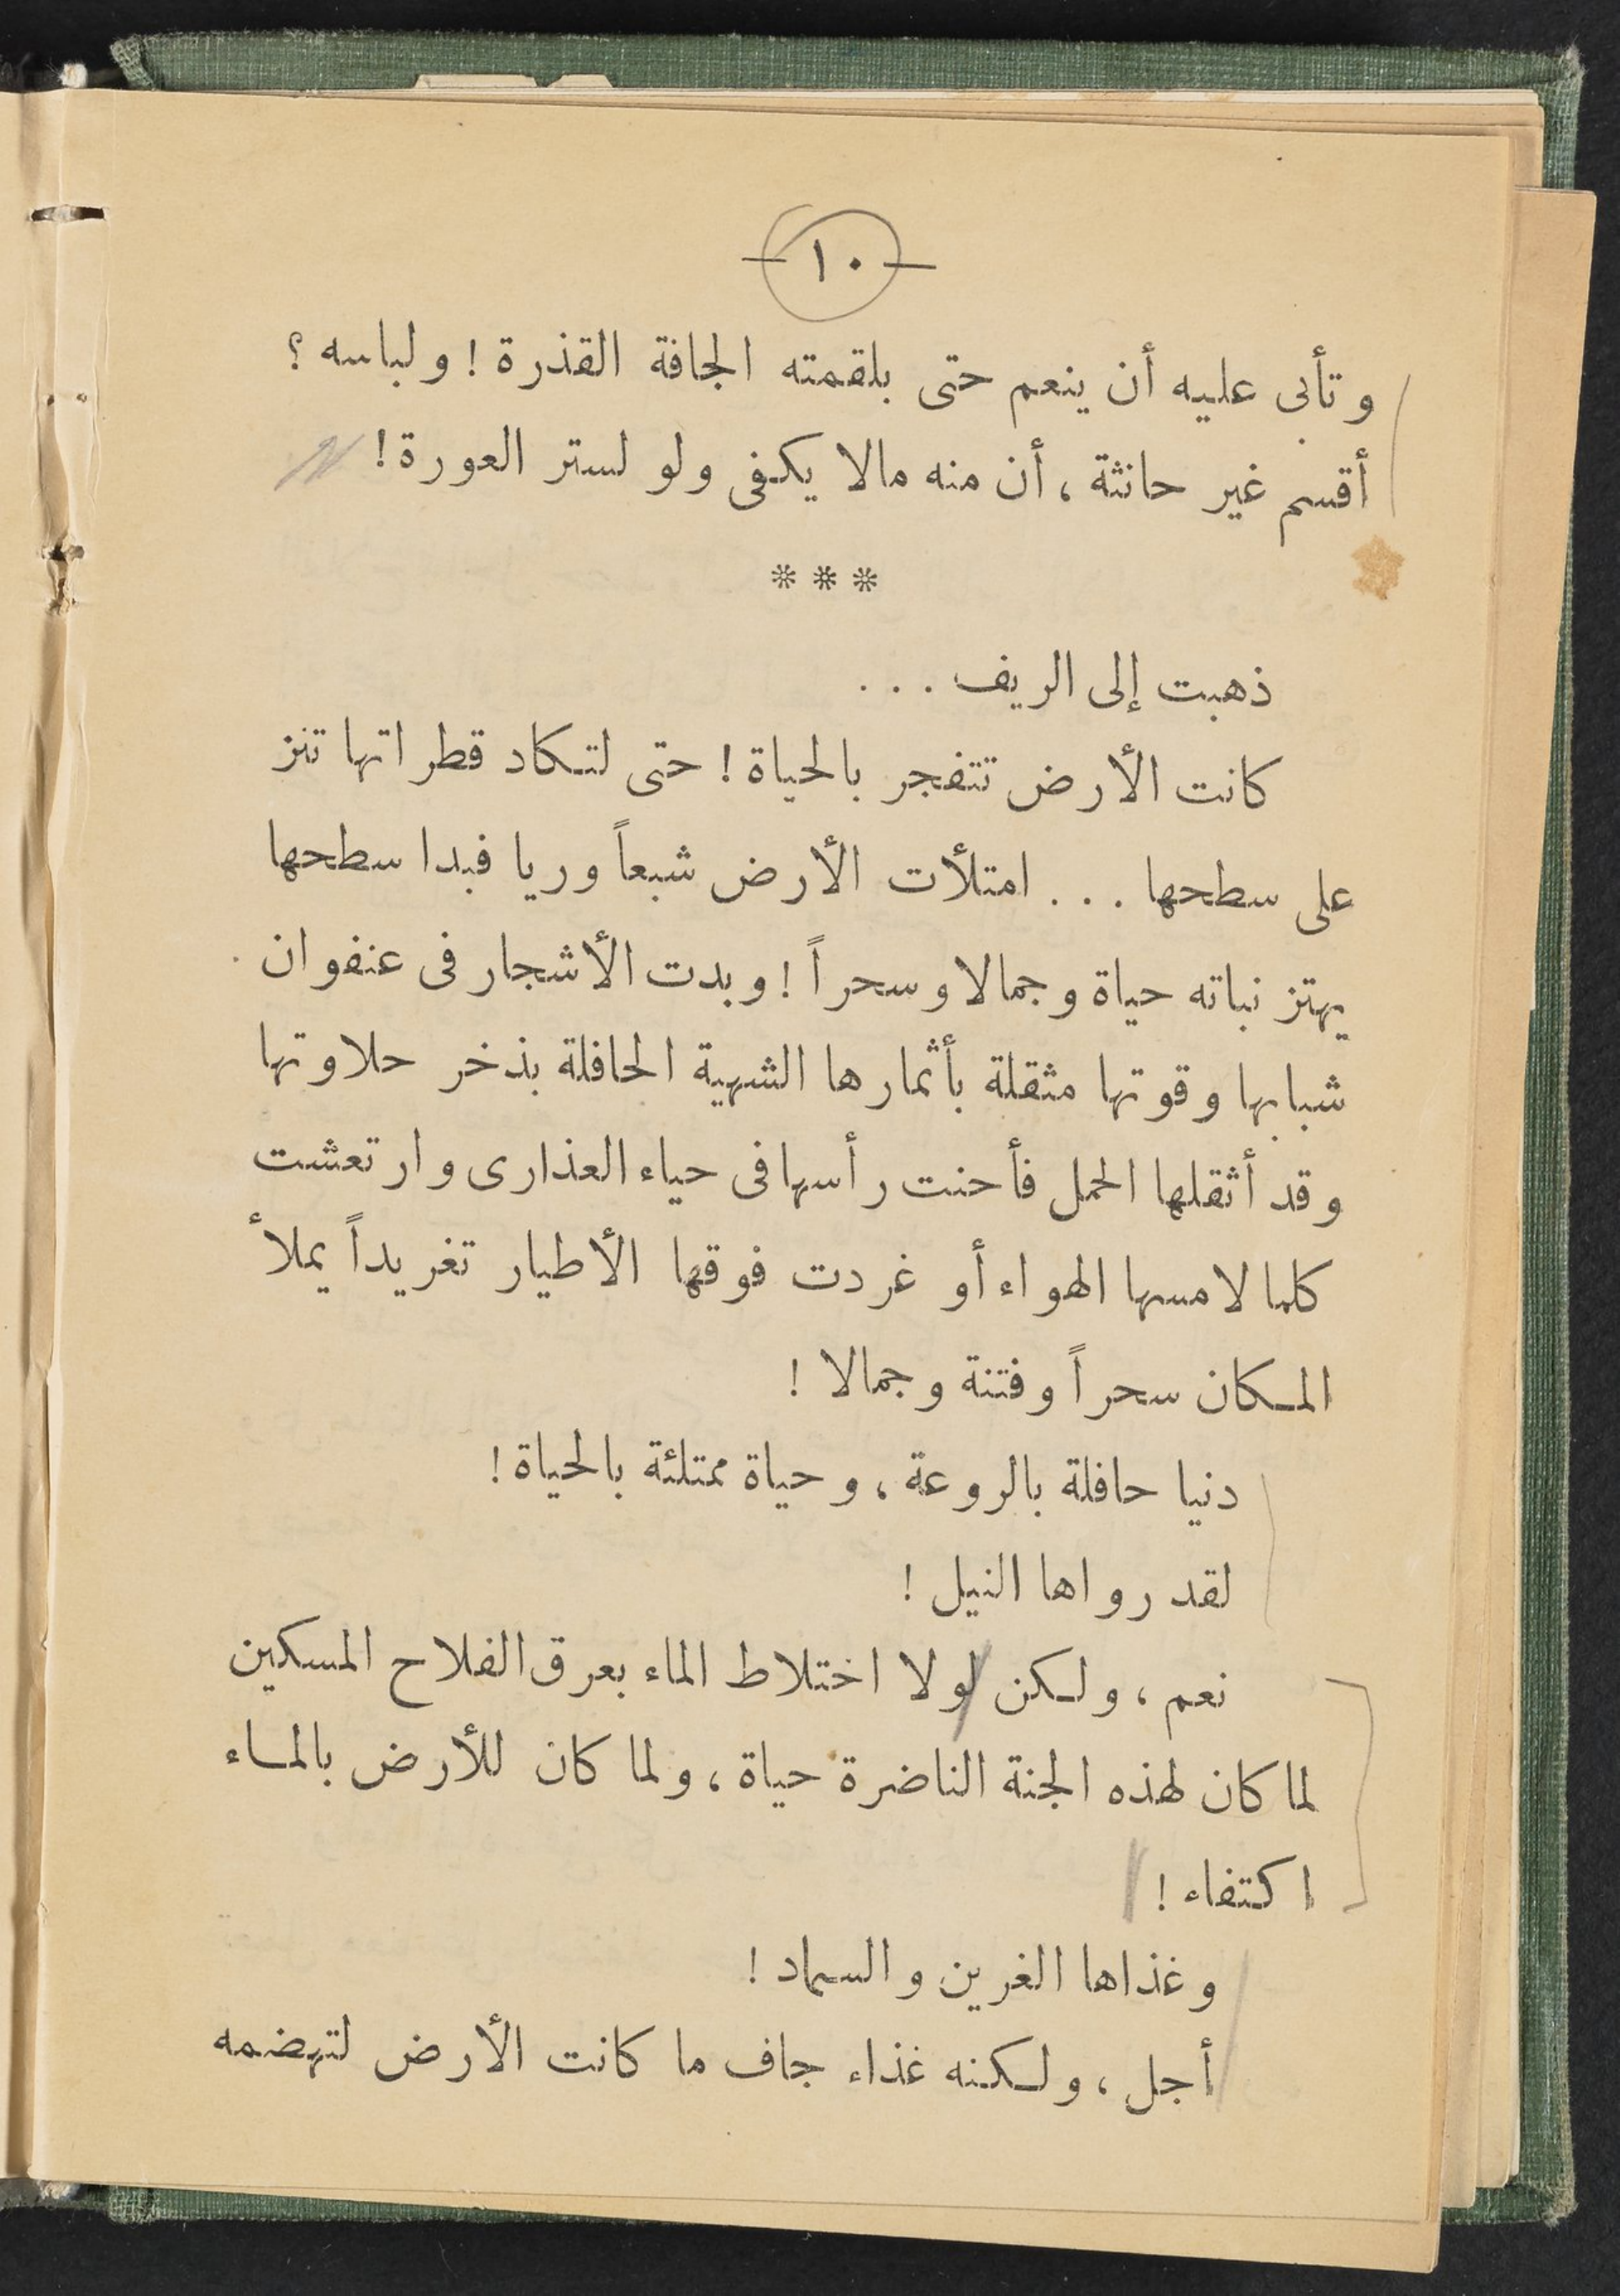 — ١٠ —
وتأبى عليه أن ينعم حتى بلقمته الجافة القذرة ! ولباسه ؟
أقسم غير حانثة ، أن منه مالا يكفى ولو لستر العورة !
* * *
ذهبت إلى الريف . . .
كانت الأرض تتفجر بالحياة ! حتى لتكاد قطراتها تنز
على سطحها . . . امتلأت الأرض شبعاً وريا فبدا سطحها
يهتز نباته حياة وجمالا وسحراً ! وبدت الأشجار فى عنفوان
شبابها وقوتها مثقلة بأثمارها الشهية الحافلة بذخر حلاوتها
وقد أثقلها الحمل فأحنت رأسها فى حياء العذارى وارتعشت
كلما لامسها الهواء أو غردت فوقها الأطيار تغريداً يملأ
المكان سحراً وفتنة وجمالا !
دنيا حافلة بالروعة ، وحياة ممتلئة بالحياة !
لقد رواها النيل !
نعم ، ولكن لولا اختلاط الماء بعرق الفلاح المسكين
لما كان لهذه الجنة الناضرة حياة ، ولما كان للأرض بالماء
اكتفاء !
وغذاها الغرين والسماد !
أجل ، ولكنه غذاء جاف ما كانت الأرض لتهضمه